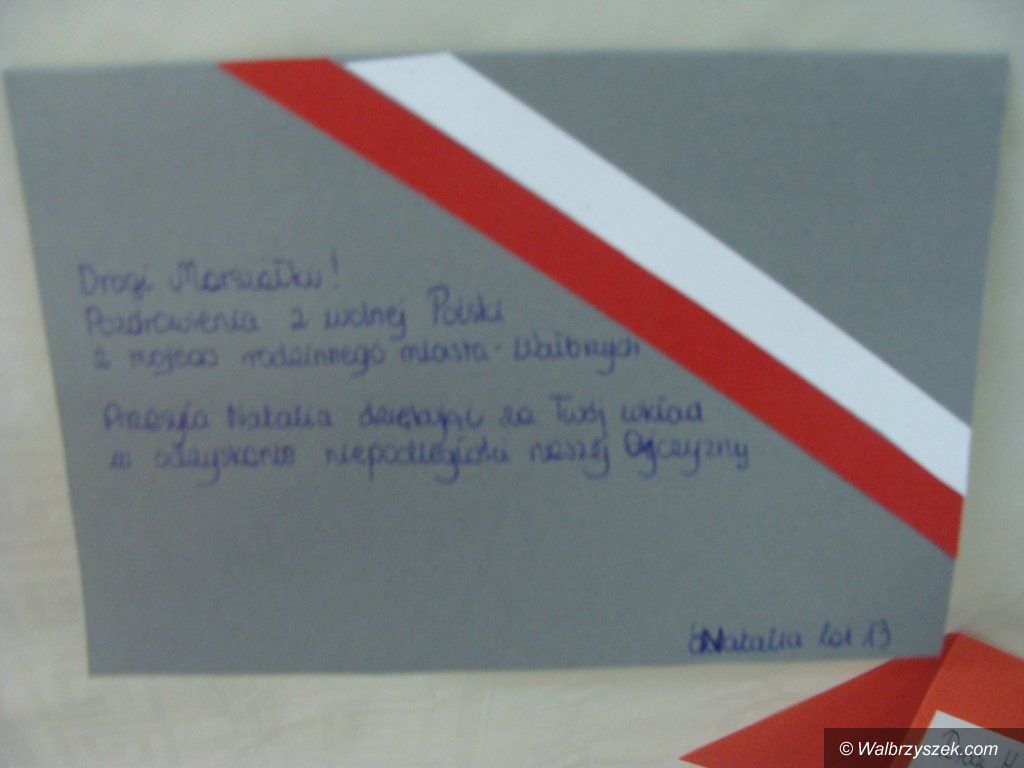 Drogi Marszałku!
Pozdrowienia z wolnej Polski
z mojego rodzinnego miasta - Wałbrzych
Natalia dziękując za Twój wkład
w odzyskanie niepodległości naszej Ojczyzny
Natalia lat 13
© Walbrzyszek.com